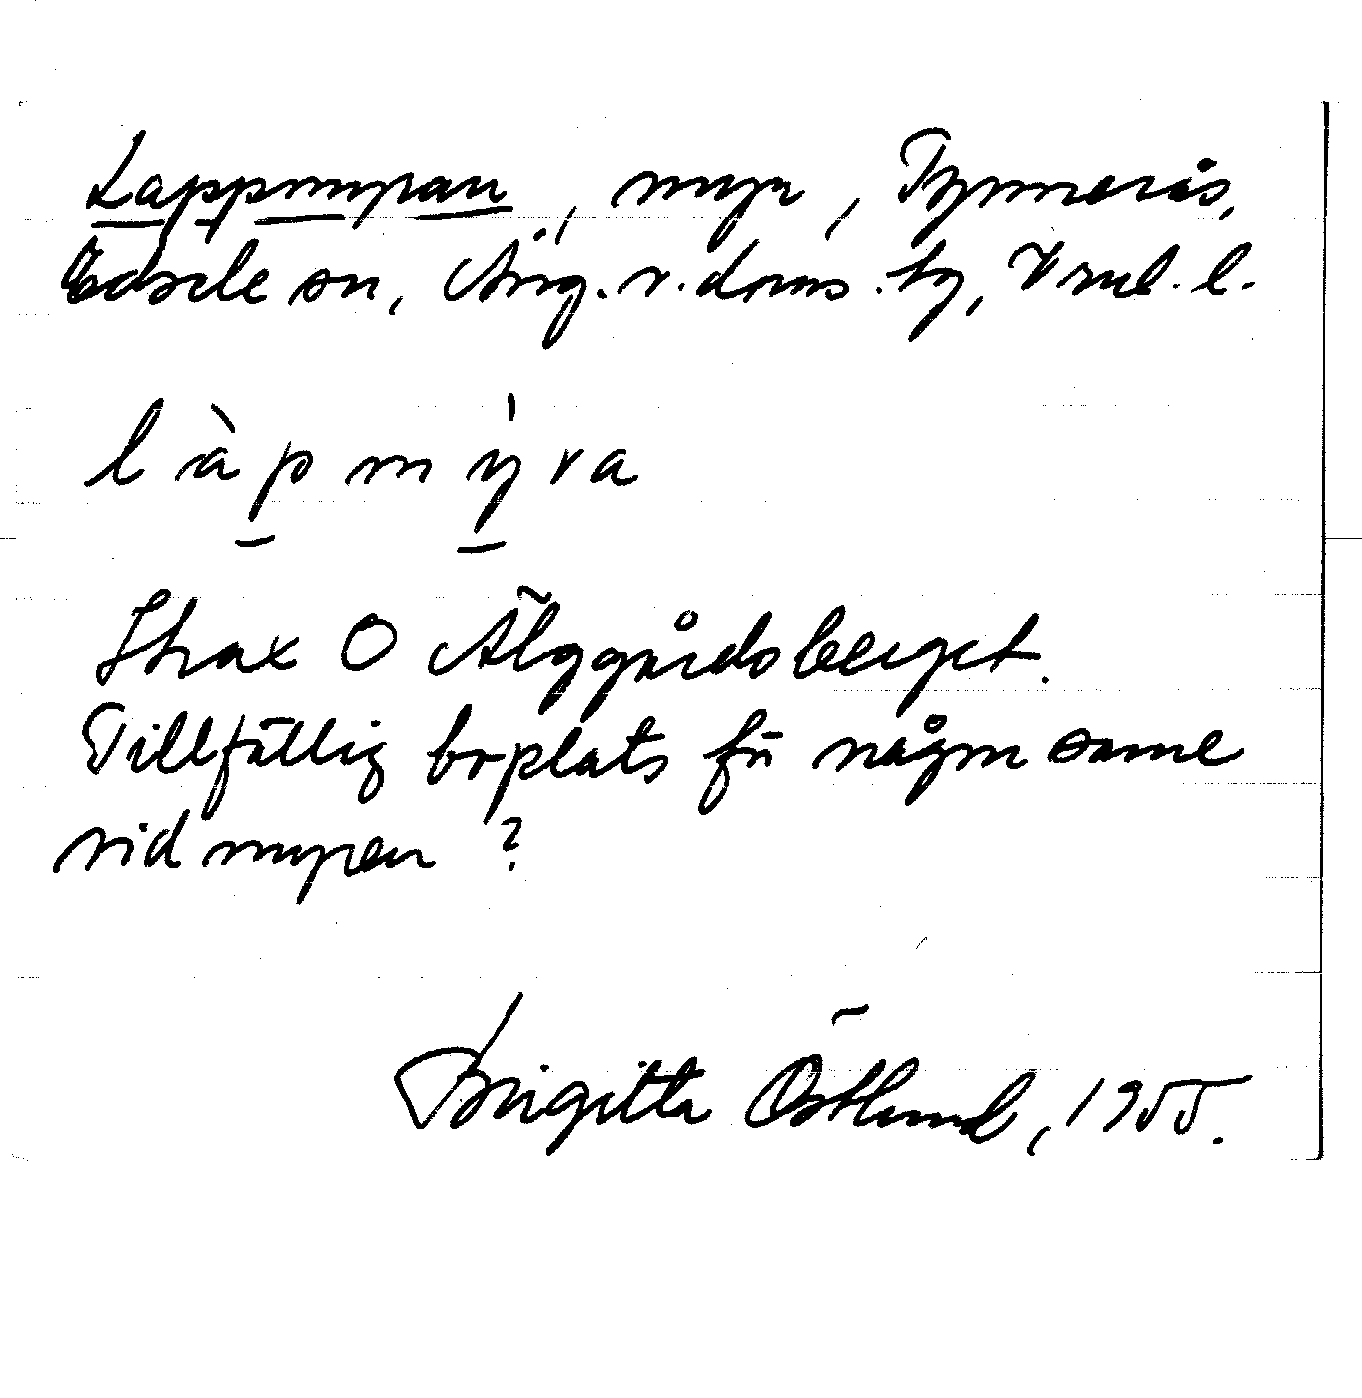 Lappmyran, myr, Tynnerås,
Edsele sn, Ång. v. doms. tg, Vnrl. l.
l à p m ý r a
Strax O Älggårdsberget.
Tillfällig boplats för någon same
vid myren?
Birgitta Östlund, 1955.